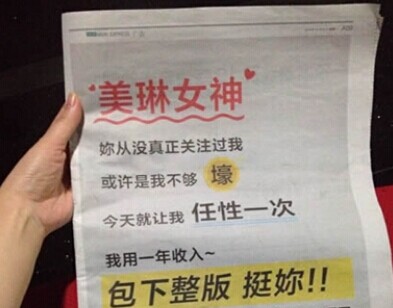 美琳女神
妳从没真正关注过我
或许是我不够 壕
今天就让我 任性一次
我用一年收入~
包下整版 挺妳!!